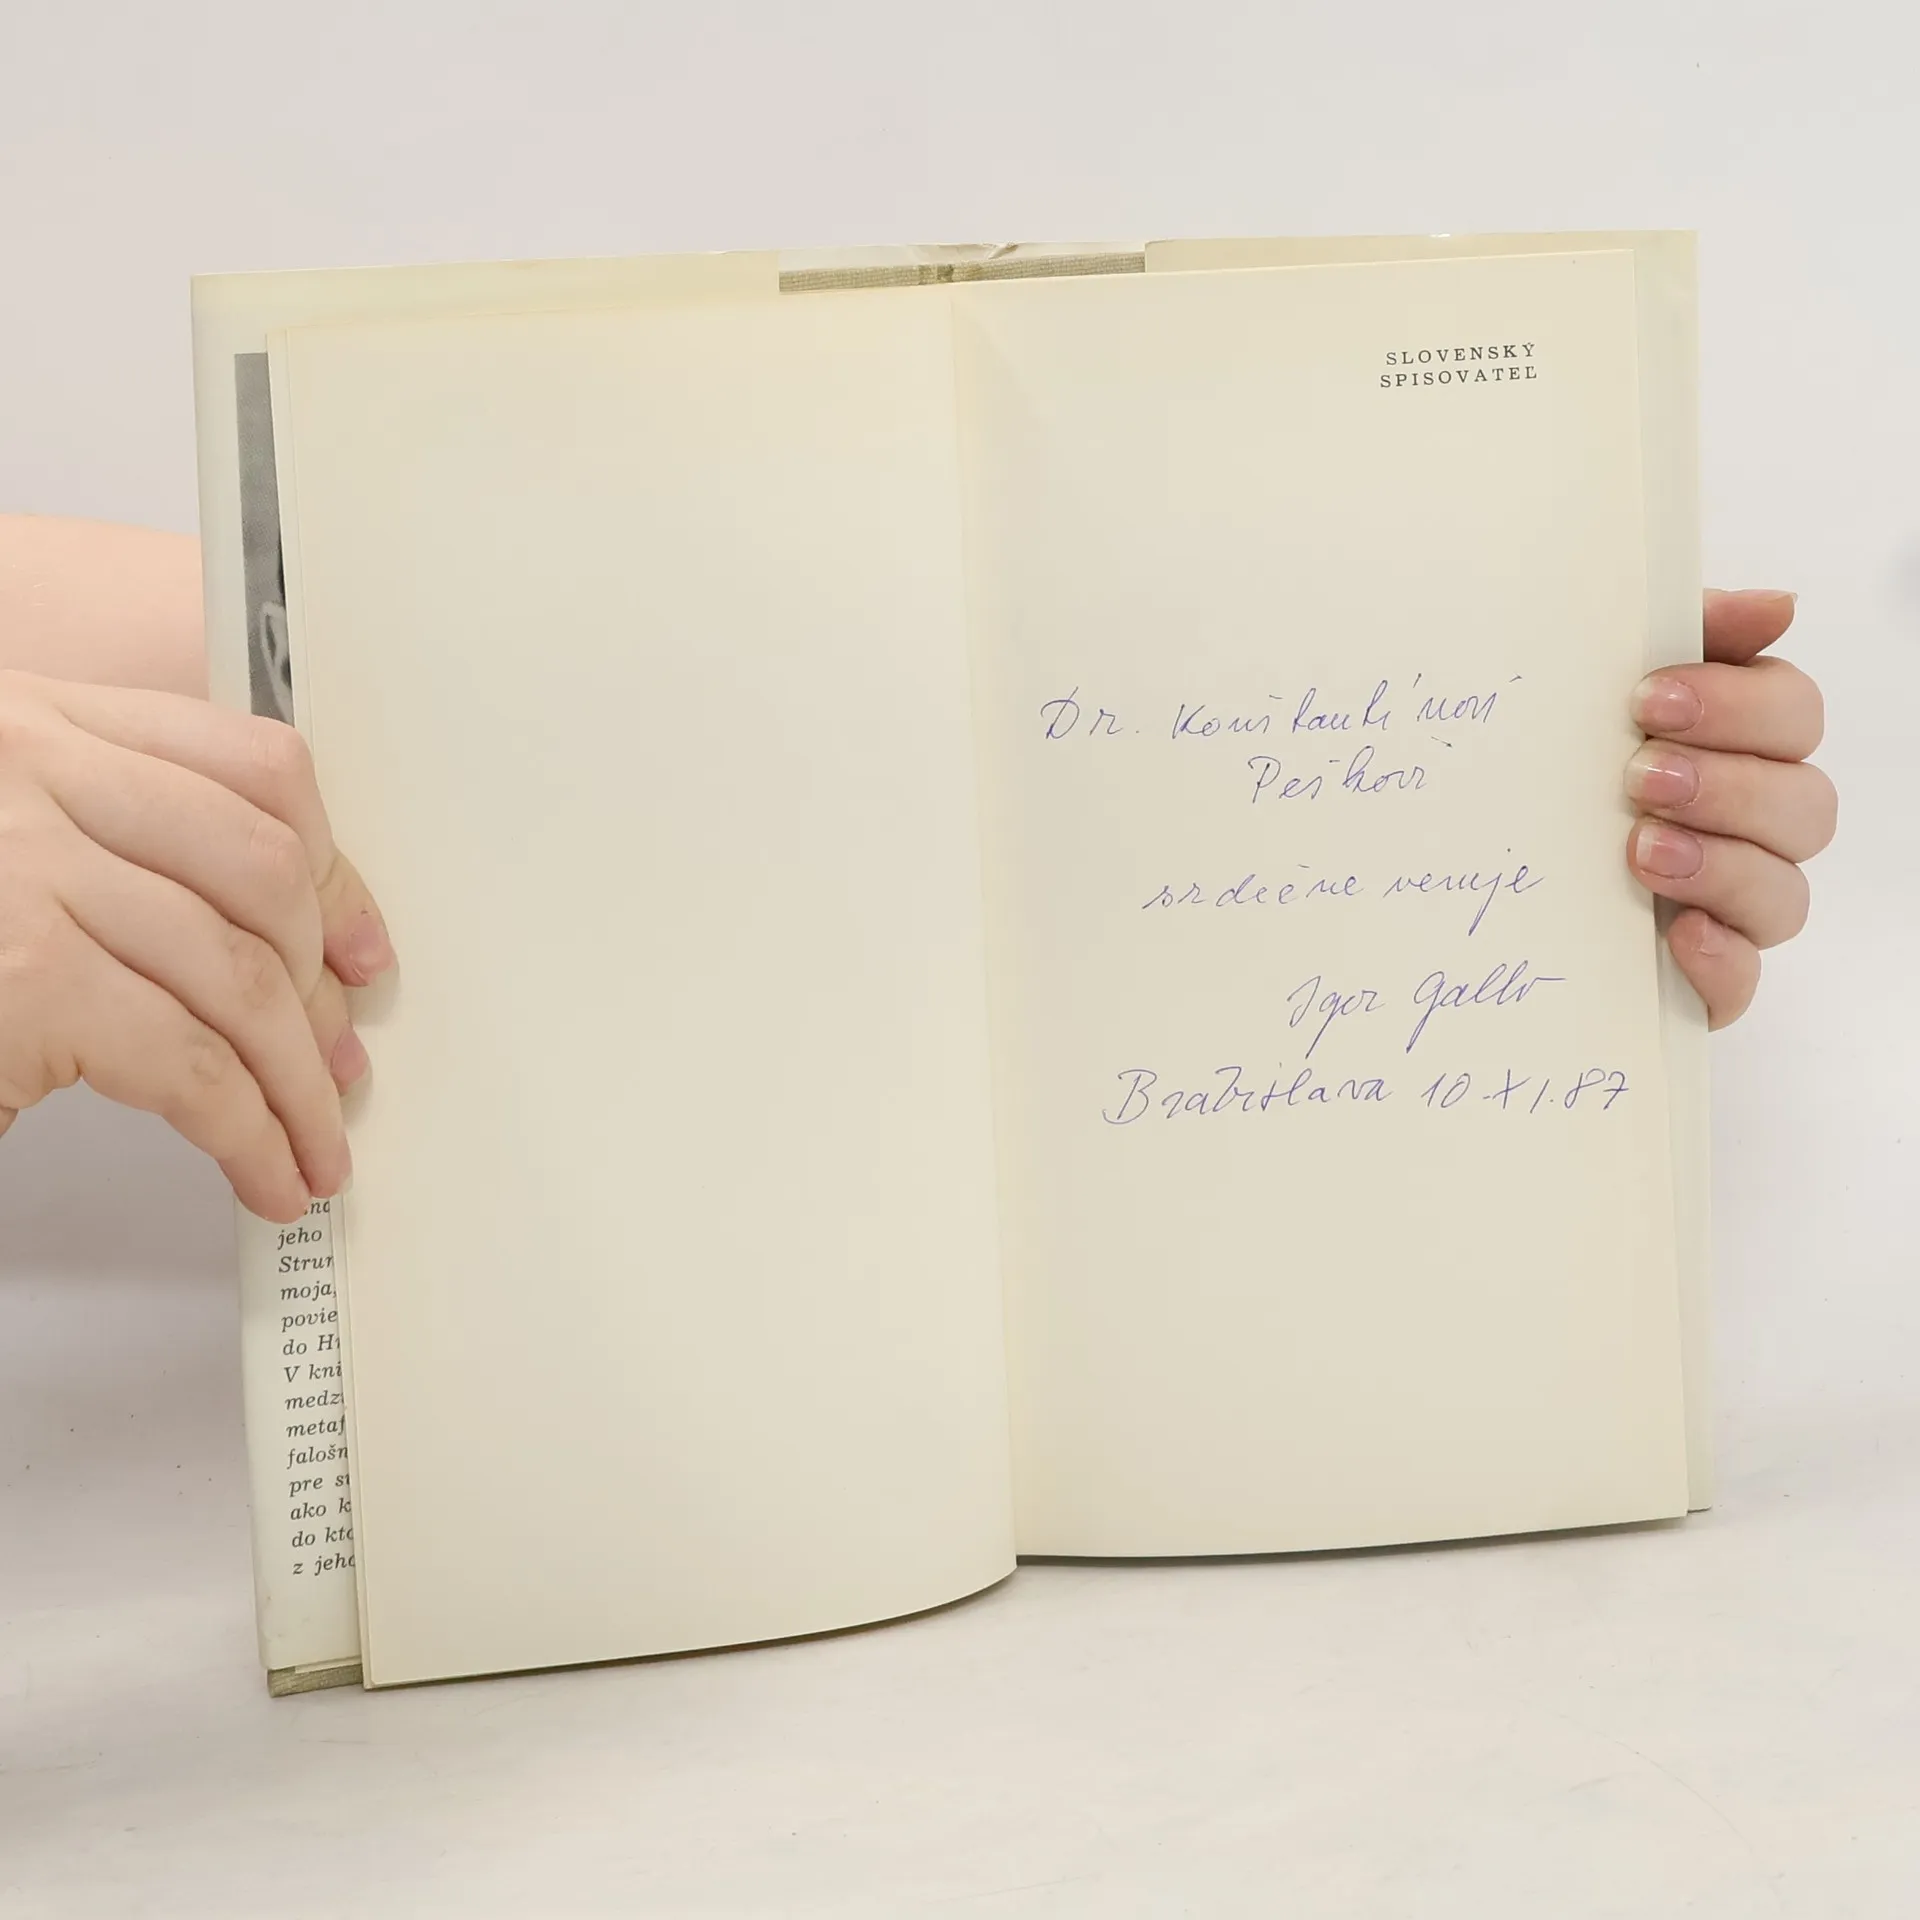 jeho
moja,
povie
V kni
medz
metaf
falošn
pre
ako k
do kto
z jeho
SLOVENSKÝ
SPISOVATEĽ
Dr. Konštantínovi
Peškovi
srdečne venuje
Igor Gallo
Bratislava 10.XI.87